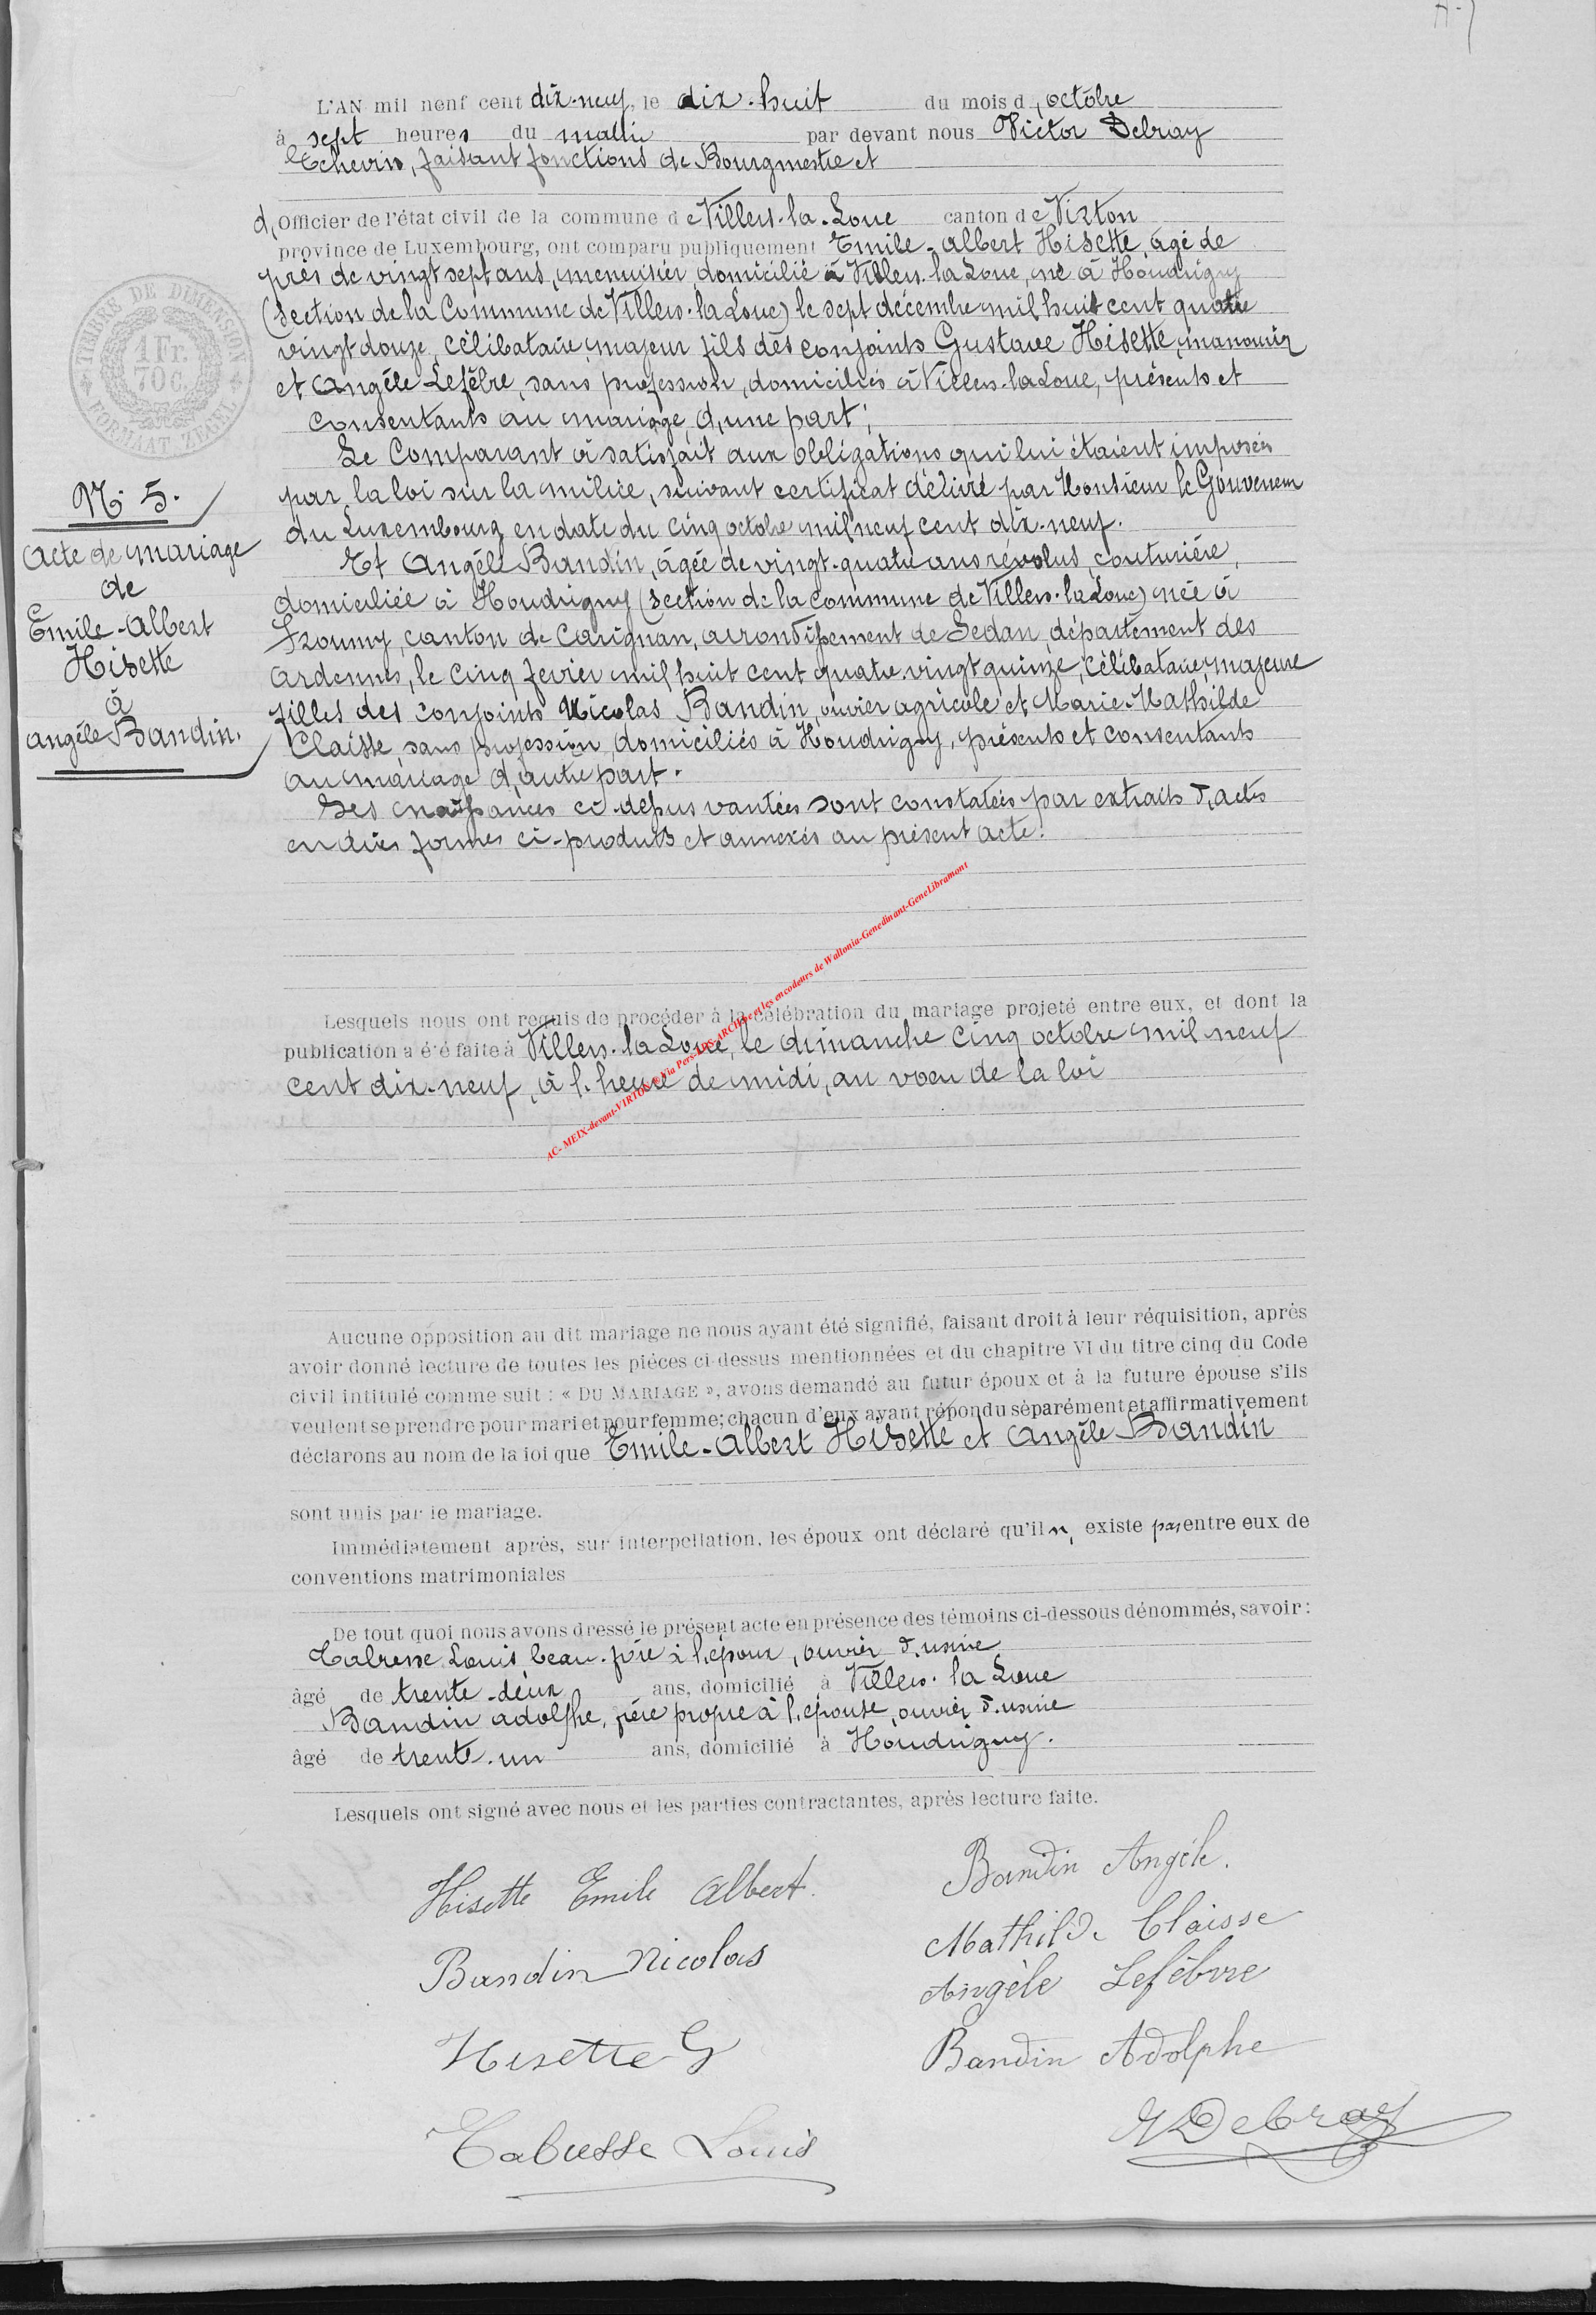 L'AN mil neuf cent dix-neuf, le dix-huit du mois d, octobre
à sept heures du matin par devant nous Victor Debray
Echevin, faisant fonctions de Bourgmestre et
d, Officier de l'état civil de la commune de Villers-la-Loue canton de Virton
province de Luxembourg, ont comparu publiquement Emile-Albert Hisette, âgé de
près de vingt sept ans, menuisier, domicilié à Villers-la-Loue, né à Houdrigny
(Section de la Commune de Villers-la-Loue) le sept décembre mil huit cent quatre
vingt douze, célibataire, majeur fils des conjoints Gustave Hisette, manouvrier
et Angèle Lefèbre, sans profession, domiciliés à Villers-la-Loue, présents et
consentants au mariage, d,une part;
Le Comparant à satisfait aux obligations qui lui étaient imposées
par la loi sur la milice, suivant certificat délivré par Monsieur le Gouverneur
du Luxembourg en date du cinq octobre mil neuf cent dix-neuf.
Et Angèle Bandin, âgée de vingt-quatre ans révolus, couturière,
domiciliée à Houdrigny (Section de la commune de Villers-la-Loue) née à
canton de Carignan, arrondissement de Sedan, département des
Ardennes, le cinq fevier mil huit cent quatre-vingt quinze, célibataire, majeure
filles des conjoints Nicolas Bandin, ouvier agricole et Marie-Mathilde
Claisse, sans profession, domiciliés à Houdrigny, présents et consentants
au mariage d,autre part.
Les naissances ci-dessus vantées sont constatées par extraits d,actes
en dües formes ci-produits et annexés au présent acte.
N° 5.
Acte de mariage
de
Emile-Albert
Hisette
à
Angèle Bandin.
TIMBRE DE DIMENSION
1 Fr.
70 C.
FORMAAT ZEGEL
Lesquels nous ont requis de procéder à la célébration du mariage projeté entre eux, et dont la
publication a été faite à Villers-la-Loue, le dimanche cinq octobre mil neuf
cent dix-neuf, à l,heure de midi, au vœu de la loi
AC- MEIX-devant-VIRTON les encodeurs de Wallonia-Genedinant-GeneLibramont
Aucune opposition au dit mariage ne nous ayant été signifié, faisant droit à leur réquisition, après
avoir donné lecture de toutes les pièces ci-dessus mentionnées et du chapitre VI du titre cinq du Code
civil intitulé comme suit : « DU MARIAGE », avons demandé au futur époux et à la future épouse s'ils
veulent se prendre pour mari et pour femme; chacun d'eux ayant répondu séparément et affirmativement
déclarons au nom de la loi que Emile-Albert Hisette et Angèle Bandin
sont unis par le mariage.
Immédiatement après, sur interpellation, les époux ont déclaré qu'il n, existe pas entre eux de
conventions matrimoniales
De tout quoi nous avons dressé le présent acte en présence des témoins ci-dessous dénommés, savoir :
Louis, beau-frère à l,époux, ouvrier d,usine
âgé de trente-deux ans, domicilié à Villers-la-Loue
Bandin Adolphe, frère propre à l,épouse, ouvrier d,usine
âgé de trente-un ans, domicilié à Houdrigny.
Lesquels ont signé avec nous et les parties contractantes, après lecture faite.
Hisette Emile Albert. Bandin Angèle.
Mathilde Claisse
Bandin Nicolas
Angèle Lefèbvre
Hisette G
Bandin Adolphe
Louis
V Debray